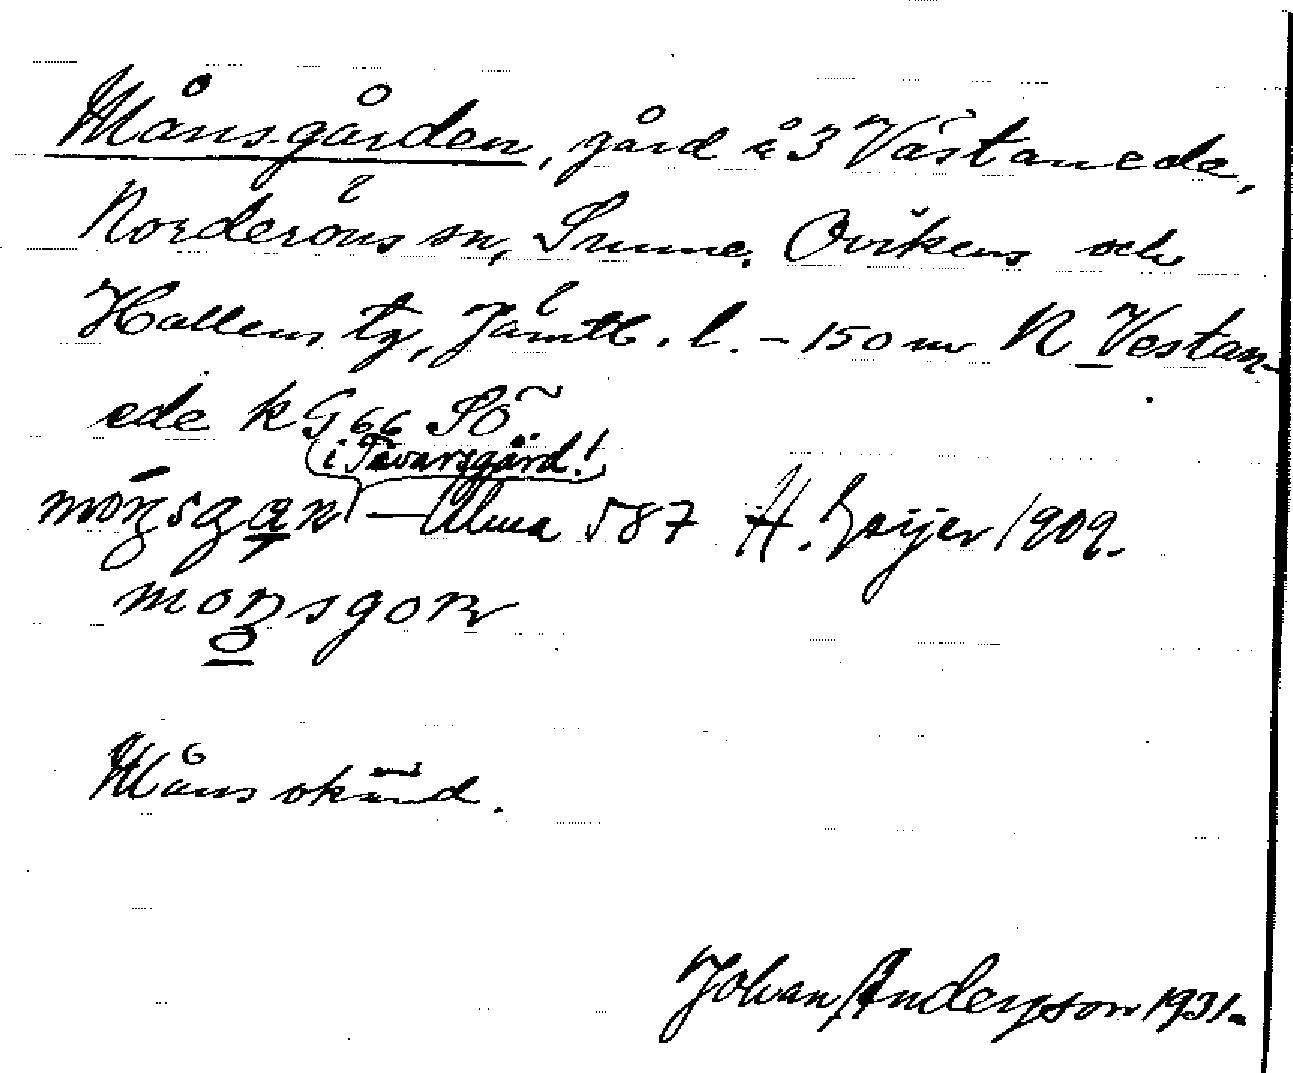 Månsgården, gård å 3 Västanede,
Norderöns sn, Sunne, Ovikens och
Hallens tg, Jämtl. l. – 150 m N Vestan-
ede kG 66 SÖ
(i Tåvarsgård!)
– Alma 587 H. Geijer 1909.
Måns okänd.
Johan Anderson 1931.